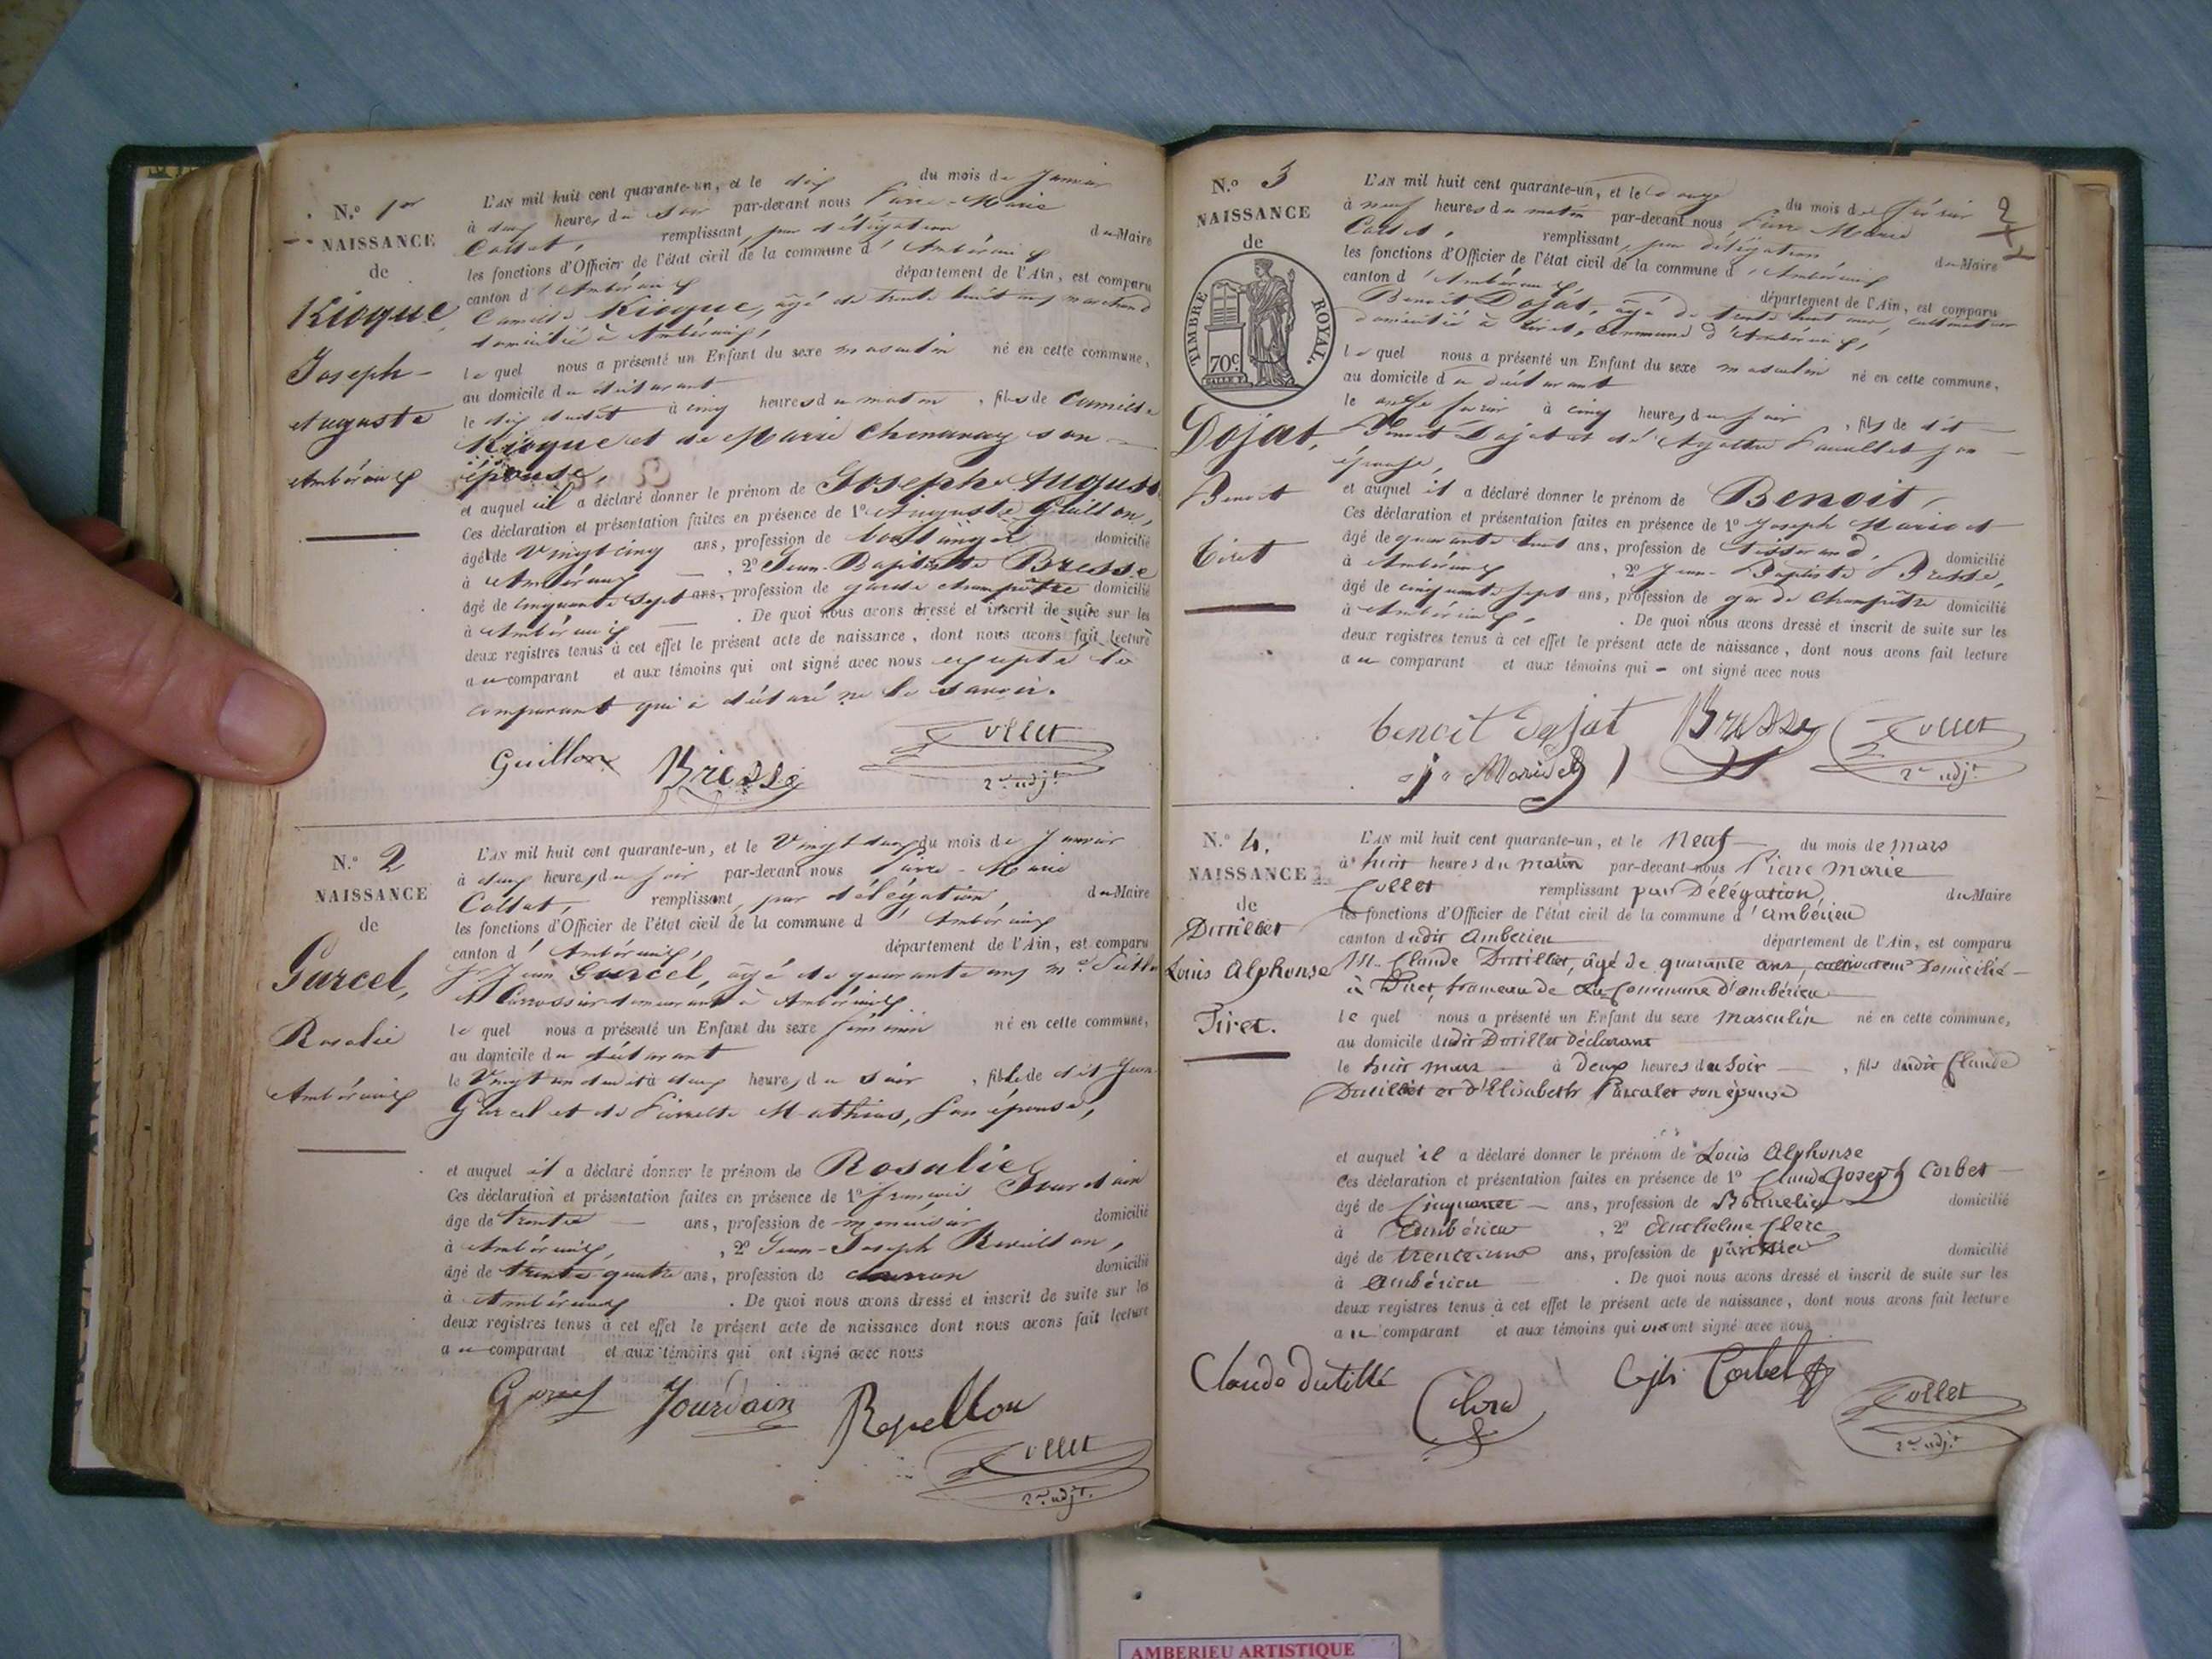 N.º 1er
NAISSANCE
de
Kioque
Joseph-
Auguste
Ambérieux
L'AN mil huit cent quarante-un, et le dix du mois de Janvier
à deux heures du soir par-devant nous Pierre-Marie
Collet, remplissant, par délégation du Maire
les fonctions d'Officier de l'état civil de la commune d'Ambérieux
canton d'Ambérieux département de l'Ain, est comparu
Camille Kioque, âgé de trente huit ans marchand
domicilié à Ambérieux,
lequel nous a présenté un Enfant du sexe masculin né en cette commune,
au domicile du déclarant
le dix dudit à cinq heures du matin, fils de Camille
Kioque et de Marie Chenavaz son
épouse,
et auquel il a déclaré donner le prénom de Joseph-Auguste
Ces déclaration et présentation faites en présence de 1º Auguste Guillon,
âgé de Vingt cinq ans, profession de boulanger domicilié
à Ambérieux, 2º Jean-Baptiste Bresse
âgé de cinquante sept ans, profession de garde champêtre domicilié
à Ambérieux. De quoi nous avons dressé et inscrit de suite sur les
deux registres tenus à cet effet le présent acte de naissance, dont nous avons fait lecture
au comparant et aux témoins qui ont signé avec nous excepté le
comparant qui a déclaré ne le savoir.
Guillon Bresse Collet
2e adjt
N.º 2
NAISSANCE
de
Garcel,
Rosalie
Ambérieux
L'AN mil huit cent quarante-un, et le Vingt deux du mois de Janvier
à deux heures du soir par-devant nous Pierre-Marie
Collet, remplissant, par délégation, du Maire
les fonctions d'Officier de l'état civil de la commune d'Ambérieux
canton d'Ambérieux, département de l'Ain, est comparu
Sr Jean Garcel, âgé de quarante ans, md Sellier
et Carrossier demeurant à Ambérieux
lequel nous a présenté un Enfant du sexe féminin né en cette commune,
au domicile du déclarant
le Vingt un dudit à deux heures du soir, fille de dit Jean
Garcel et de Pierrette Mathieu, son épouse,
et auquel il a déclaré donner le prénom de Rosalie
Ces déclaration et présentation faites en présence de 1º françois Jourdain
âgé de trente ans, profession de menuisier domicilié
à Ambérieux, 2º Jean-Joseph Revellon,
âgé de trente quatre ans, profession de charron domicilié
à Ambérieux. De quoi nous avons dressé et inscrit de suite sur les
deux registres tenus à cet effet le présent acte de naissance dont nous avons fait lecture
au comparant et aux témoins qui ont signé avec nous
Garcel Jourdain Revellon
Collet
2e adjt.
2
N.º 3
NAISSANCE
de
TIMBRE ROYAL.
70c
Dojat,
Benoit
Tiret
L'AN mil huit cent quarante-un, et le douze du mois de février
à neuf heures du matin par-devant nous Pierre Marie
Collet, remplissant, par délégation du Maire
les fonctions d'Officier de l'état civil de la commune d'Ambérieux
canton d'Ambérieux, département de l'Ain, est comparu
Benoit Dojat, âgé de trente huit ans, cultivateur
domicilié à Tiret, commune d'Ambérieux,
lequel nous a présenté un Enfant du sexe masculin né en cette commune,
au domicile du déclarant
le onze février à cinq heures du soir, fils de dit
Benoit Dojat et de Agathe son
épouse,
et auquel il a déclaré donner le prénom de Benoit,
Ces déclaration et présentation faites en présence de 1º Joseph Mariet
âgé de quarante huit ans, profession de tisserand, domicilié
à Ambérieux, 2º Jean-Baptiste Bresse,
âgé de cinquante sept ans, profession de garde champêtre domicilié
à Ambérieux. De quoi nous avons dressé et inscrit de suite sur les
deux registres tenus à cet effet le présent acte de naissance, dont nous avons fait lecture
au comparant et aux témoins qui - ont signé avec nous
benoit dojat Bresse Collet
2e adjt
N.º 4.
NAISSANCE
de
Dutillet
Louis Alphonse
Tiret.
L'AN mil huit cent quarante-un, et le Neuf du mois de mars
à huit heures du matin par-devant nous Pierre Marie
Collet remplissant par Délégation du Maire
les fonctions d'Officier de l'état civil de la commune d'ambérieu
canton dudit Amberieu département de l'Ain, est comparu
M. Claude Dutillet, âgé de quarante ans, cultivateur Domicilié
à Tiret, hameau de la Commune d'ambérieu
lequel nous a présenté un Enfant du sexe Masculin né en cette commune,
au domicile dudit Dutillet Déclarant
le huit mars à Deux heures du Soir, fils dudit Claude
Dutillet et d'Elisabeth Pascalet son épouse
et auquel il a déclaré donner le prénom de Louis Alphonse
Ces déclaration et présentation faites en présence de 1º Claude Joseph Corbet
âgé de Cinquante ans, profession de domicilié
à Ambérieu, 2º Anthelme Clerc
âgé de trente-un ans, profession de domicilié
à Ambérieu. De quoi nous avons dressé et inscrit de suite sur les
deux registres tenus à cet effet le présent acte de naissance, dont nous avons fait lecture
au comparant et aux témoins qui ont signé avec nous
Claude dutillé Clerc Corbet Collet
2e adjt
AMBERIEU ARTISTIQUE